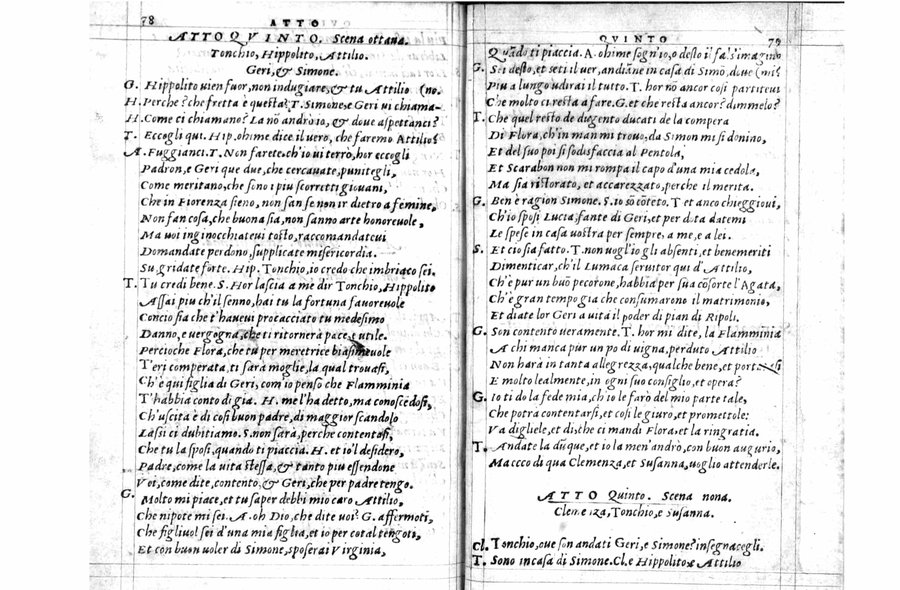 78 ATTO
ATTO QVINTO. Scena ottaua.
Tonchio, Hippolito, Attilio.
Geri, & Simone.
G. Hippolito vien fuor, non indugiare, & tu Attilio (no.
H. Perche? che fretta è questa? T. Simone, e Geri ui chiama-
H. Come ci chiamano? La nõ andrò io, & doue aspettanci?
T. Eccogli qui. Hip. ohime dice il uero, che faremo Attilio?
A. Fuggianci. T. Non farete, ch'io ui terrò, hor eccogli
Padron, e Geri que due, che cercauate, punitegli,
Come meritano, che sono i piu scorretti giouani,
Che in Fiorenza sieno, non san se non ir dietro a femine,
Non fan cosa, che buona sia, non sanno arte honoreuole,
Ma uoi inginocchiateui tosto, raccomandateui
Domandate perdono, supplicate misericordia.
Su, gridate forte. Hip. Tonchio, io credo che imbriaco sei.
T. Tu credi bene. S. Hor lascia a me dir Tonchio, Hippolito
Assai piu ch'il senno, hai tu la fortuna fauoreuole
Concio sia che t'haueui procacciato tu medesimo
Danno, e uergogna, che ti ritornerà pace, e utile.
Percioche Flora, che tu per meretrice biasimeuole
T'eri comperata, ti sarà moglie, la qual trouasi,
Ch'è qui figlia di Geri, com'io penso che Flamminia
T'habbia conto di gia. H. me l'ha detto, ma conoscedosi,
Ch'uscita è di cosi buon padre, di maggior scandolo
Lassi ci dubitiamo. S. non sarà, perche contentasi,
Che tu la sposi, quando ti piaccia. H. et io'l desidero,
Padre, come la uita stessa, & tanto piu essendone
Voi, come dite, contento, & Geri, che per padre tengo.
G. Molto mi piace, et tu saper debbi mio caro Attilio,
Che nipote mi sei. A. oh Dio, che dite uoi? G. affermoti,
Che figliuol sei d'una mia figlia, et io per cotal tengoti,
Et con buon uoler di Simone, sposerai Virginia,
QVINTO 79
Quãdo ti piaccia. A. ohime sogn'io, o desto il fals'imagino
G. Sei desto, et seti il uer, andiãne in casa di Simõ, doue (mi?
Piu a lungo udirai il tutto. T. hor nõ ancor cosi partiteui
Che molto ci resta a fare. G. et che resta ancor? dimmelo?
T. Che quel resto de dugento ducati de la compera
Di Flora, ch'in man mi trouo, da Simon mi si donino,
Et del suo poi si sodisfaccia al Pentola,
Et Scarabon non mi rompa il capo d'una mia cedola,
Ma sia ristorato, et accarezzato, perche il merita.
G. Ben è ragion Simone. S. io sõ cõteto. T et anco chieggioui,
Ch'io sposi Lucia, fante di Geri, et per dota datemi
Le spese in casa uostra per sempre, a me, e a lei.
S. Et cio sia fatto. T. non uogl'io gli absenti, et benemeriti
Dimenticar, ch'il Lumaca seruitor qui d'Attilio,
Ch'è pur un buõ pecorone, habbia per sua cõsorte l'Agata,
Ch'è gran tempo gia che consumarono il matrimonio,
Et diate lor Geri a uita il poder di pian di Ripoli.
G. Son contento ueramente. T. hor mi dite, la Flamminia
A chi manca pur un po di uigna, perduto Attilio
Non harà in tanta allegrezza, qualche bene, et
E molto lealmente, in ogni suo consiglio, et opera?
G. Io ti do la fede mia, ch'io le farò del mio parte tale,
Che potrà contentarsi, et cosi le giuro, et promettole:
Va digliele, et di, che ci mandi Flora, et la ringratia.
T. Andate la dũque, et io la men'andrò, con buon augurio,
Ma ecco di qua Clemenza, et Susanna, uoglio attenderle.
ATTO Quinto. Scena nona.
Clemenza, Tonchio, e Susanna.
Cl. Tonchio, oue son andati Geri, e Simone? insegnacegli.
T. Sono in casa di Simone. Cl. e Hippolito, e Attilio